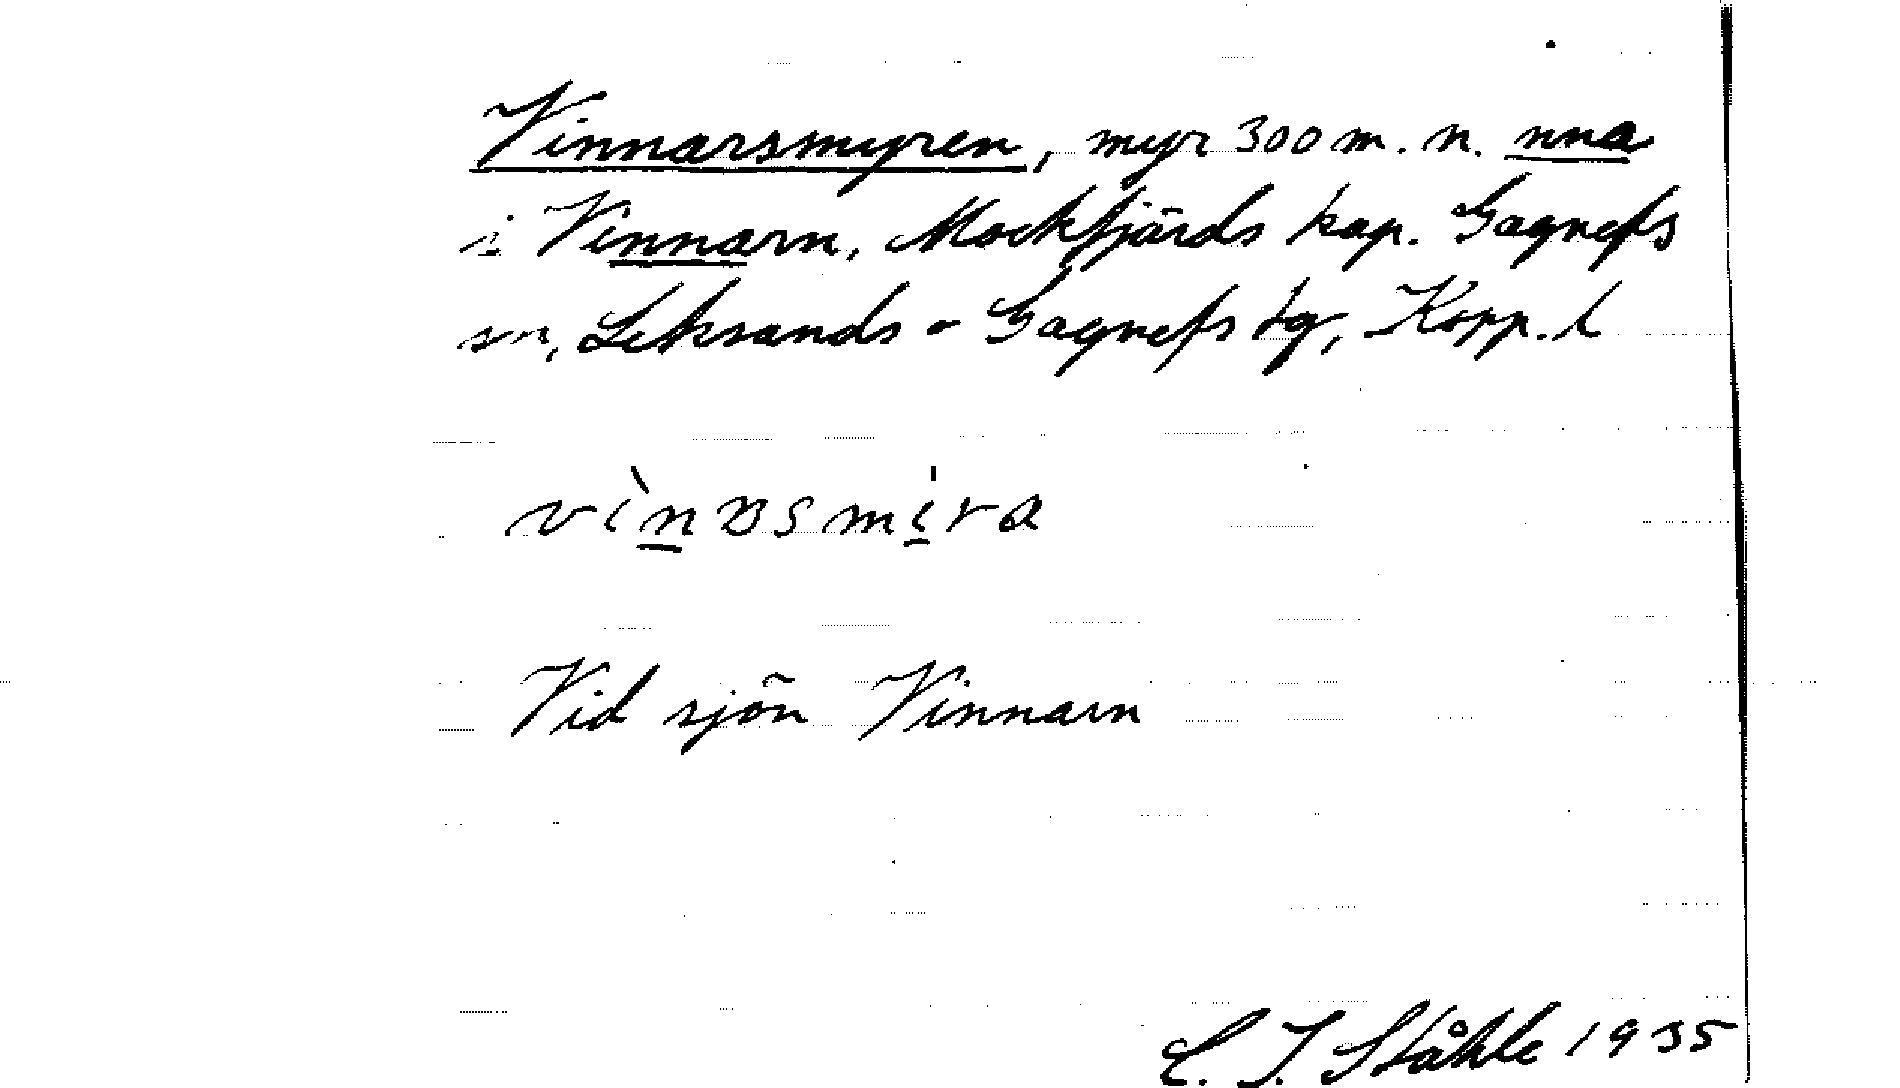 Vinnarsmyren, myr 300 m. n. nna
i Vinnarn, Mockfjärds kap. Gagnefs
sn, Leksands - Gagnefs tg, Kopp. l
Vid sjön Vinnarn
C. I. Ståhle 1935